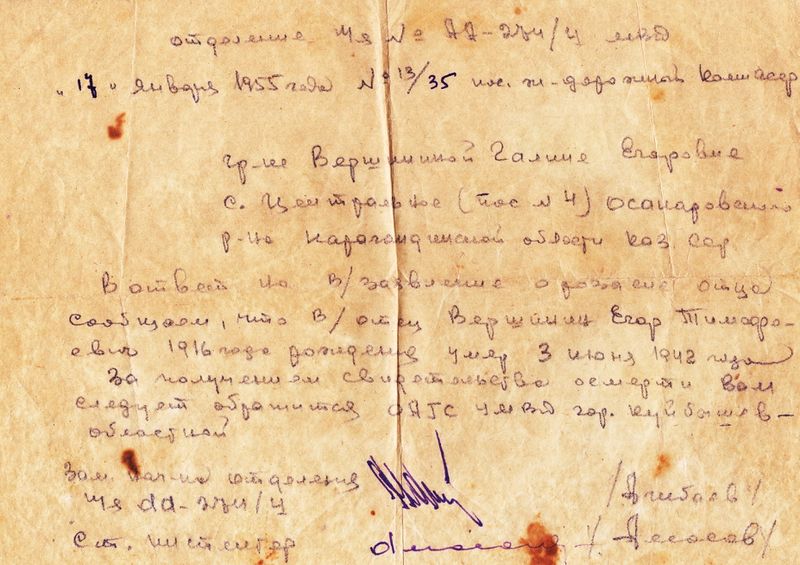 отделение п/я № АА-274/4 МВД
"17" января 1955 года № 13/35 пос. ж-дорожный
гр-не Вершининой Галине Егоровне
с. Центральное (пос № 4) Осакаровского
р-на Карагандинской области Каз. ССР
В ответ на В/заявление о отца
сообщаем, что В/отец Вершинин Егор Тимофе-
евич 1916 года рождения умер 3 июня 1942 года
За получением свидетельства о смерти Вам
следует обратится ОАГС УМВД гор. Куйбышев-
областной
Зам. нач-ка отделения
п/я АА-274/4
Ст. инспектор